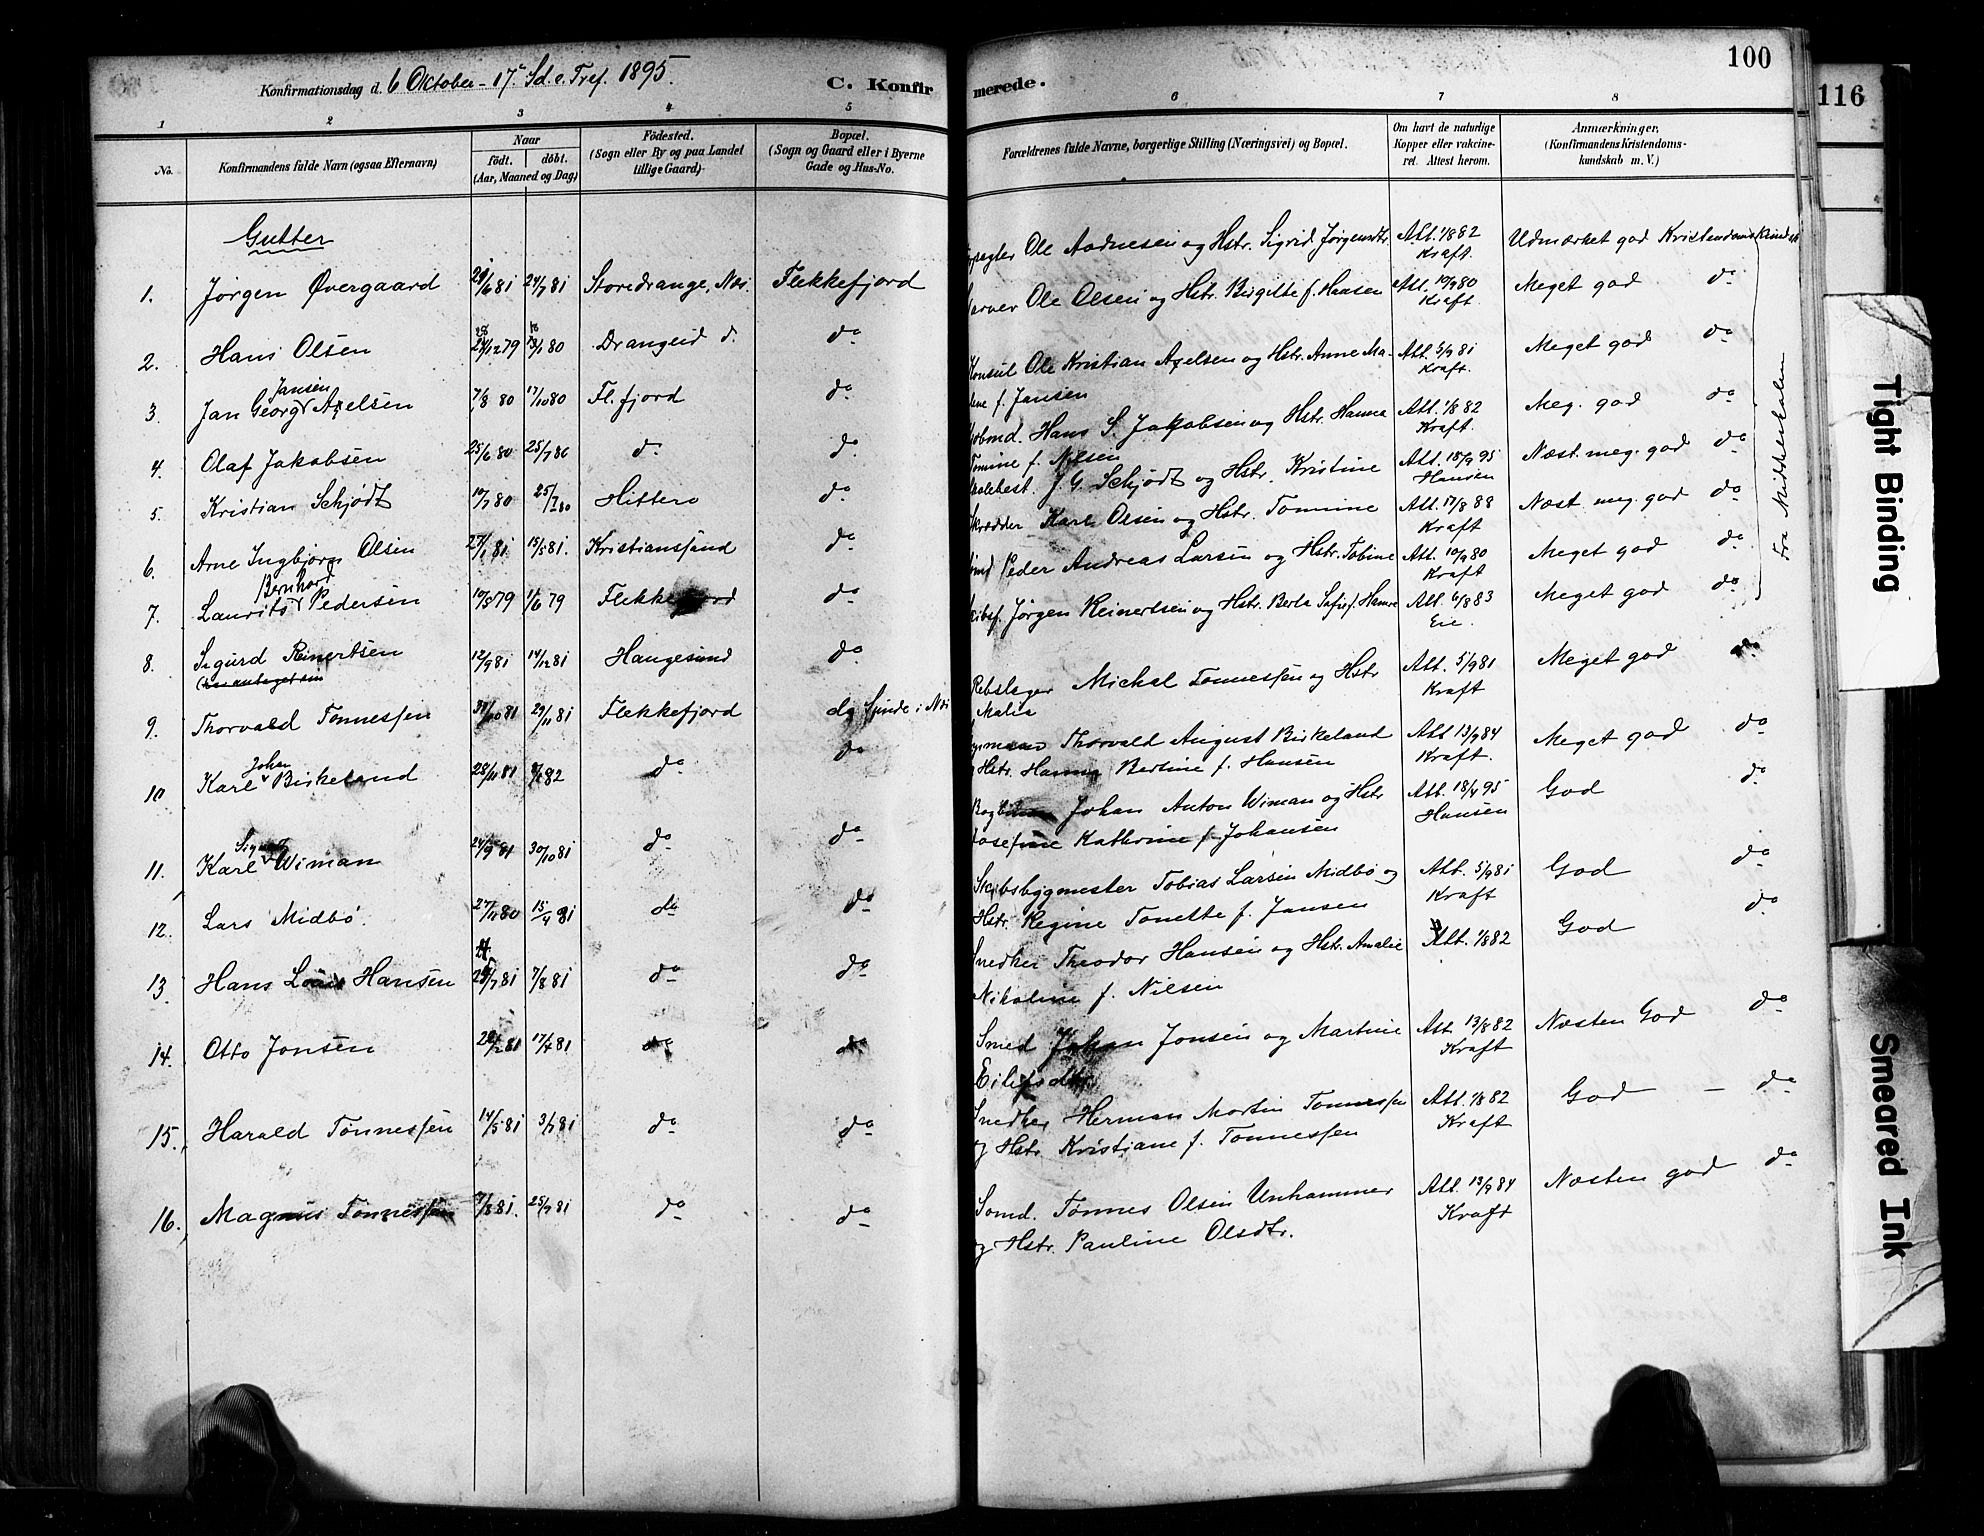 Konfirmationsdag d. 6 Oktober - 17de Sd. e. Tref. 1895.
C. Konfirmerede.
100
116
1 2 3 4 5 6 7 8
No.
Konfirmandens fulde Navn (ogsaa Efternavn)
Naar
født. døbt.
(Aar, Maaned og Dag)
Fødested.
(Sogn eller By og paa Landet
tillige Gaard)
Bopæl.
(Sogn og Gaard eller i Byerne
Gade og Hus-No.
Forældrenes fulde Navne, borgerlige Stilling (Næringsvei) og Bopæl.
Om havt de naturlige
Kopper eller vakcine-
ret. Attest herom.
Anmærkninger,
(Konfirmandens Kristendoms-
kundskab m. V.)
Gutter
1. Jørgen Øvergaard 29/6 81 24/7 81 Storedrange, Nes. Flekkefjord
Ole Aadnesen og Hstr. Sigrid Jørgensdtr. Att. 1/8 82 Kraft. Udmærket god Kristendomskundsk.
2. Hans Olsen 12 79 1 80 Drangeid do do
Ole Olsen og Hstr. Birgitte f. Hansen Att. 10/9 80 Kraft Meget god do
3. Jan Georg Jansen Axelsen 7/8 80 17/10 80 Fl.fjord do
Konsul Ole Kristian Axelsen og Hstr. Anne Ma-
f. Jansen Att. 5/9 81 Kraft. Meget god do
4. Olaf Jakobsen 25/6 80 25/7 80 do do
Hans S. Jakobsen og Hstr. Hanna
Tomine f. Nilsen Att. 1/8 82 Kraft. Meg. god do
5. Kristian Schjødt 10/7 80 25/7 80 Hitterø do
J. G. Schjødt og Hstr. Kristine Att. 18/9 95 Hansen Næst. meg. god do
6. Arne Ingbjørn Olsen 27/1 81 15/5 81. Kristianssund do
Skrædder Karl Olsen og Hstr. Tomine Att. 17/8 88 Kraft Næst. meg. god do
7. Laurits Bernhard Pedersen 10/5 79 1/6 79 Flekkefjord do
Peder Andreas Larsen og Hstr. Tobine Att. 10/9 80 Kraft Meget god do
8. Sigurd Reinertsen 12/9 81 14/12 81 Haugesund do
Jørgen Reinertsen og Hstr. Berta Sofie f. Hansen Att. 6/8 83 Eie. Meget god do
Fra Middelskolen
9. Thorvald Tønnessen 31/10 81 29/11 81 Flekkefjord do Sunde i Nes
Rebslager Mickal Tønnessen og Hstr
Malia Att. 5/9 81 Kraft Meget god do
10 Karl Johan Birkeland 28/11 81 82 do do
Thorvald August Birkeland
Hstr. Hanna Bertine f. Hansen Att 13/9 84 Kraft. Meget god do
11. Karl Wiman 24/9 81 30/10 81 do do
Johan Anton Wiman og Hstr
Josefine Kathrine f. Johansen Att. 18/4 95 Hansen God do
12. Lars Midbø. 27/11 80 15/4 81 do do
Skibsbygmester Tobias Larsen Midbø og
Hstr. Regine Tonette f. Jansen Att. 5/9 81 Kraft God do
13. Hans Louis Hansen 7 81 7/8 81 do do
Snedker Theodor Hansen og Hstr. Amalie
Nikoline f. Nilsen Att. 1/8 82 God do
14. Otto Jonsen 2 81 17/4 81 do do
Smed Johan Jonsen og Martine
Eilefsdtr. Att. 13/8 82 Kraft Næsten God do
15. Harald Tønnessen 14/5 81 3/7 81 do do
Snedker Herman Martin Tønnessen
og Hstr. Kristiane f. Tønnessen Att. 1/8 82 Kraft God - do
16. Magnus Tønnessen 7/8 81. 25/9 81 do do
Sømd. Tønnes Olsen Unhammer
og Hstr. Pauline Olsdtr. Att. 13/9 84 Kraft Næsten god do
Tight Binding
Smeared Ink